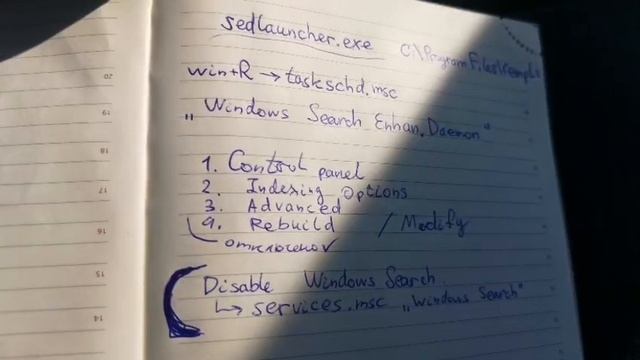 sedlauncher.exe
C:\Program Files\rempl
win+R → taskschd.msc
„Windows Search Enhan. Daemon"
1. Control panel
2. Indexing Options
3. Advanced
4. Rebuild / Modify
отключено ✓
Disable Windows Search
↳ services.msc „Windows Search"
20
19
18
17
16
15
14